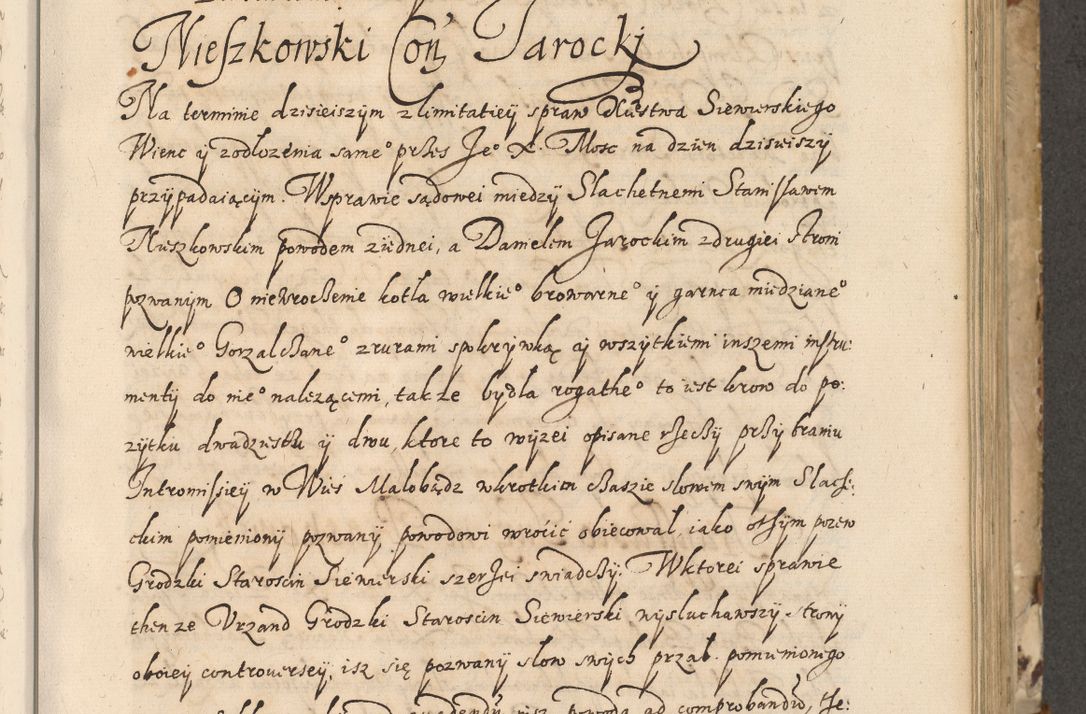 Nieszkowski Con Jarockj
Na terminie dzisieiszym z limitatiey spraw Xiestwa Siewierskiego
Wienc y zodłozenia same° przes Je° X. Mosc na dzien dzisieiszy
przypadaiącym. Wsprawie sądowei miedzy Slachetnemi Stanisławem
Nieszkowskim powodem ziednei, a Danielem Jarockim zdrugiei stroni
pozwanym O niewrochenie kotła wielkie° browarne° y garnca miedziane°
wielkie° Gorzalchane° zrurami spokrywką y wszytkiemi inszemi instru:
menty do nie° nalezącemi, takze bydła rogathe° to iest krow do po:
zytku dwadziestu y dwu, ktore to wyzei opisane rzechy przy braniu
Intromissiey w Wies Malobądz wkrotkim chaszie slowem swym Slach:
ckim pomieniony pozwany powodowi wrocic obiecował, iako othym pozew
Grodzki Staroscin Siewierski szerzei swiadchy. Wktorei sprawie
then ze Vrzand Grodzki Staroscin Siewierski wysluchawszy strony
oboiey controversey, isz się pozwany slow swych przał. pomienionego
powoda ad comprobandu, the: